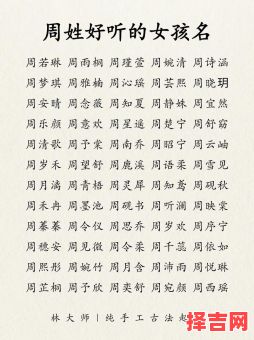 周姓好听的女孩名
周若琳 周雨桐 周瑾萱 周婉清 周诗涵
周梦琪 周雅楠 周沁瑶 周芸熙 周晓玥
周安晴 周念薇 周知夏 周静姝 周宜然
周乐颜 周意欢 周星遥 周楚宁 周舒窈
周清歌 周予棠 周南乔 周昭宁 周云岫
周岁禾 周望舒 周鹿溪 周语柔 周雪见
周月漓 周青梧 周灵犀 周知鸢 周砚秋
周禾冉 周墨池 周砚书 周听澜 周映棠
周蓁蓁 周令仪 周思乔 周岁欢 周序宁
周穗安 周见微 周令柔 周千蕊 周依如
周熙彤 周婉竹 周月含 周沛雨 周悦琳
周芷桐 周子欣 周奕舒 周宛颜 周西瑶
林大师｜纯手工古法起
择吉网